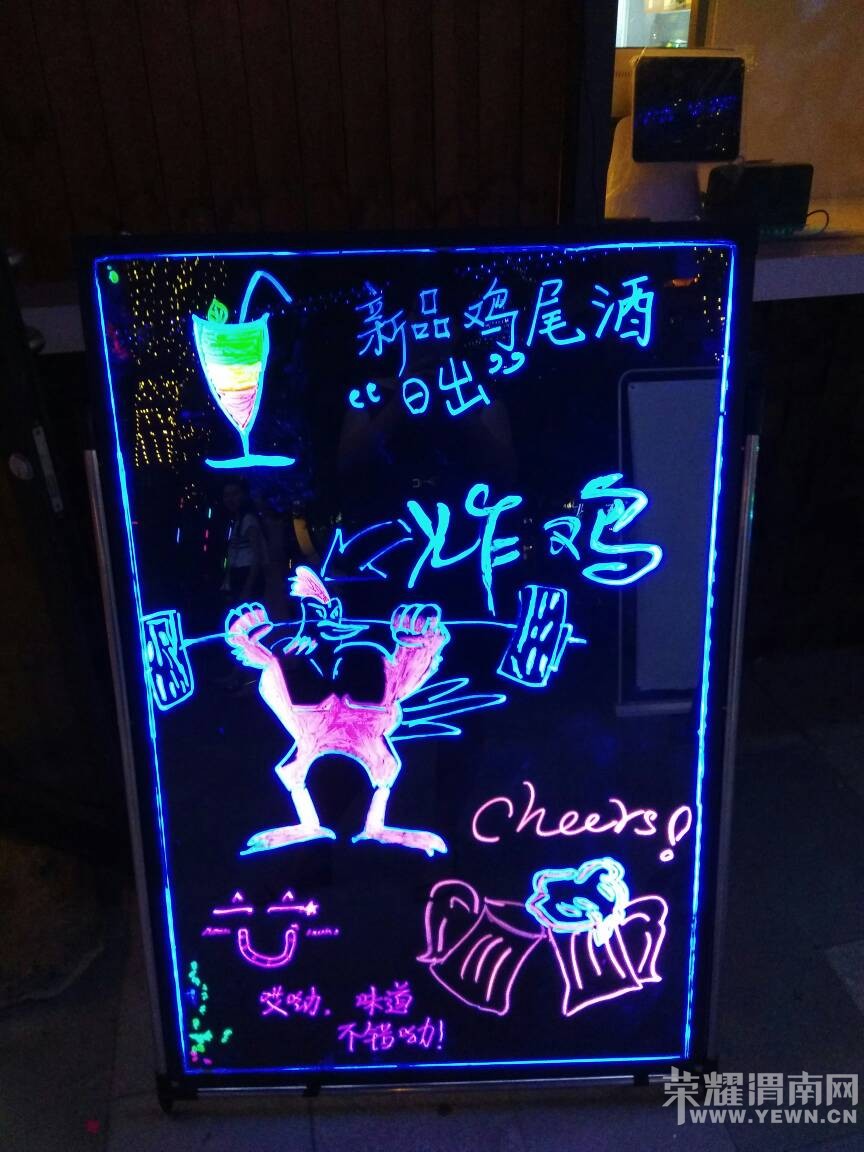 新品鸡尾酒
“日出”
炸鸡
cheers!
哎呦，味道
不错呦!
荣耀渭南网
WWW.YEWN.CN